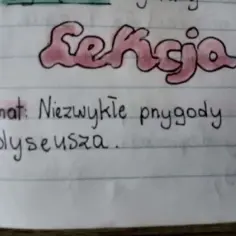 Lekcja
mat: Niezwykłe przygody
dyseusza.